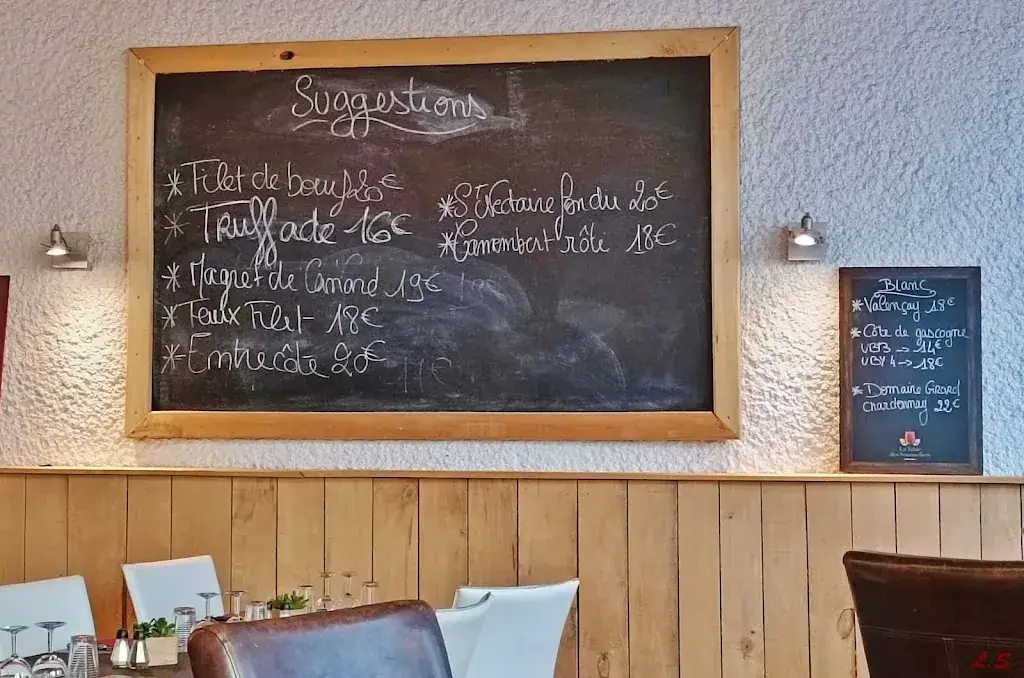 Suggestions
* Filet de boeuf 20€
* Truffade 16€
* Magret de Canard 19€
* Faux Filet 18€
* Entrecôte 20€
* St Nectaire fondu 20€
* Camembert rôti 18€
Blanc
* Valençay 18€
* Côte de gascogne
UBY3 → 14€
UBY4 → 18€
* Domaine Girard
Chardonnay 22€
La Table
des Sommeliers
L.S.